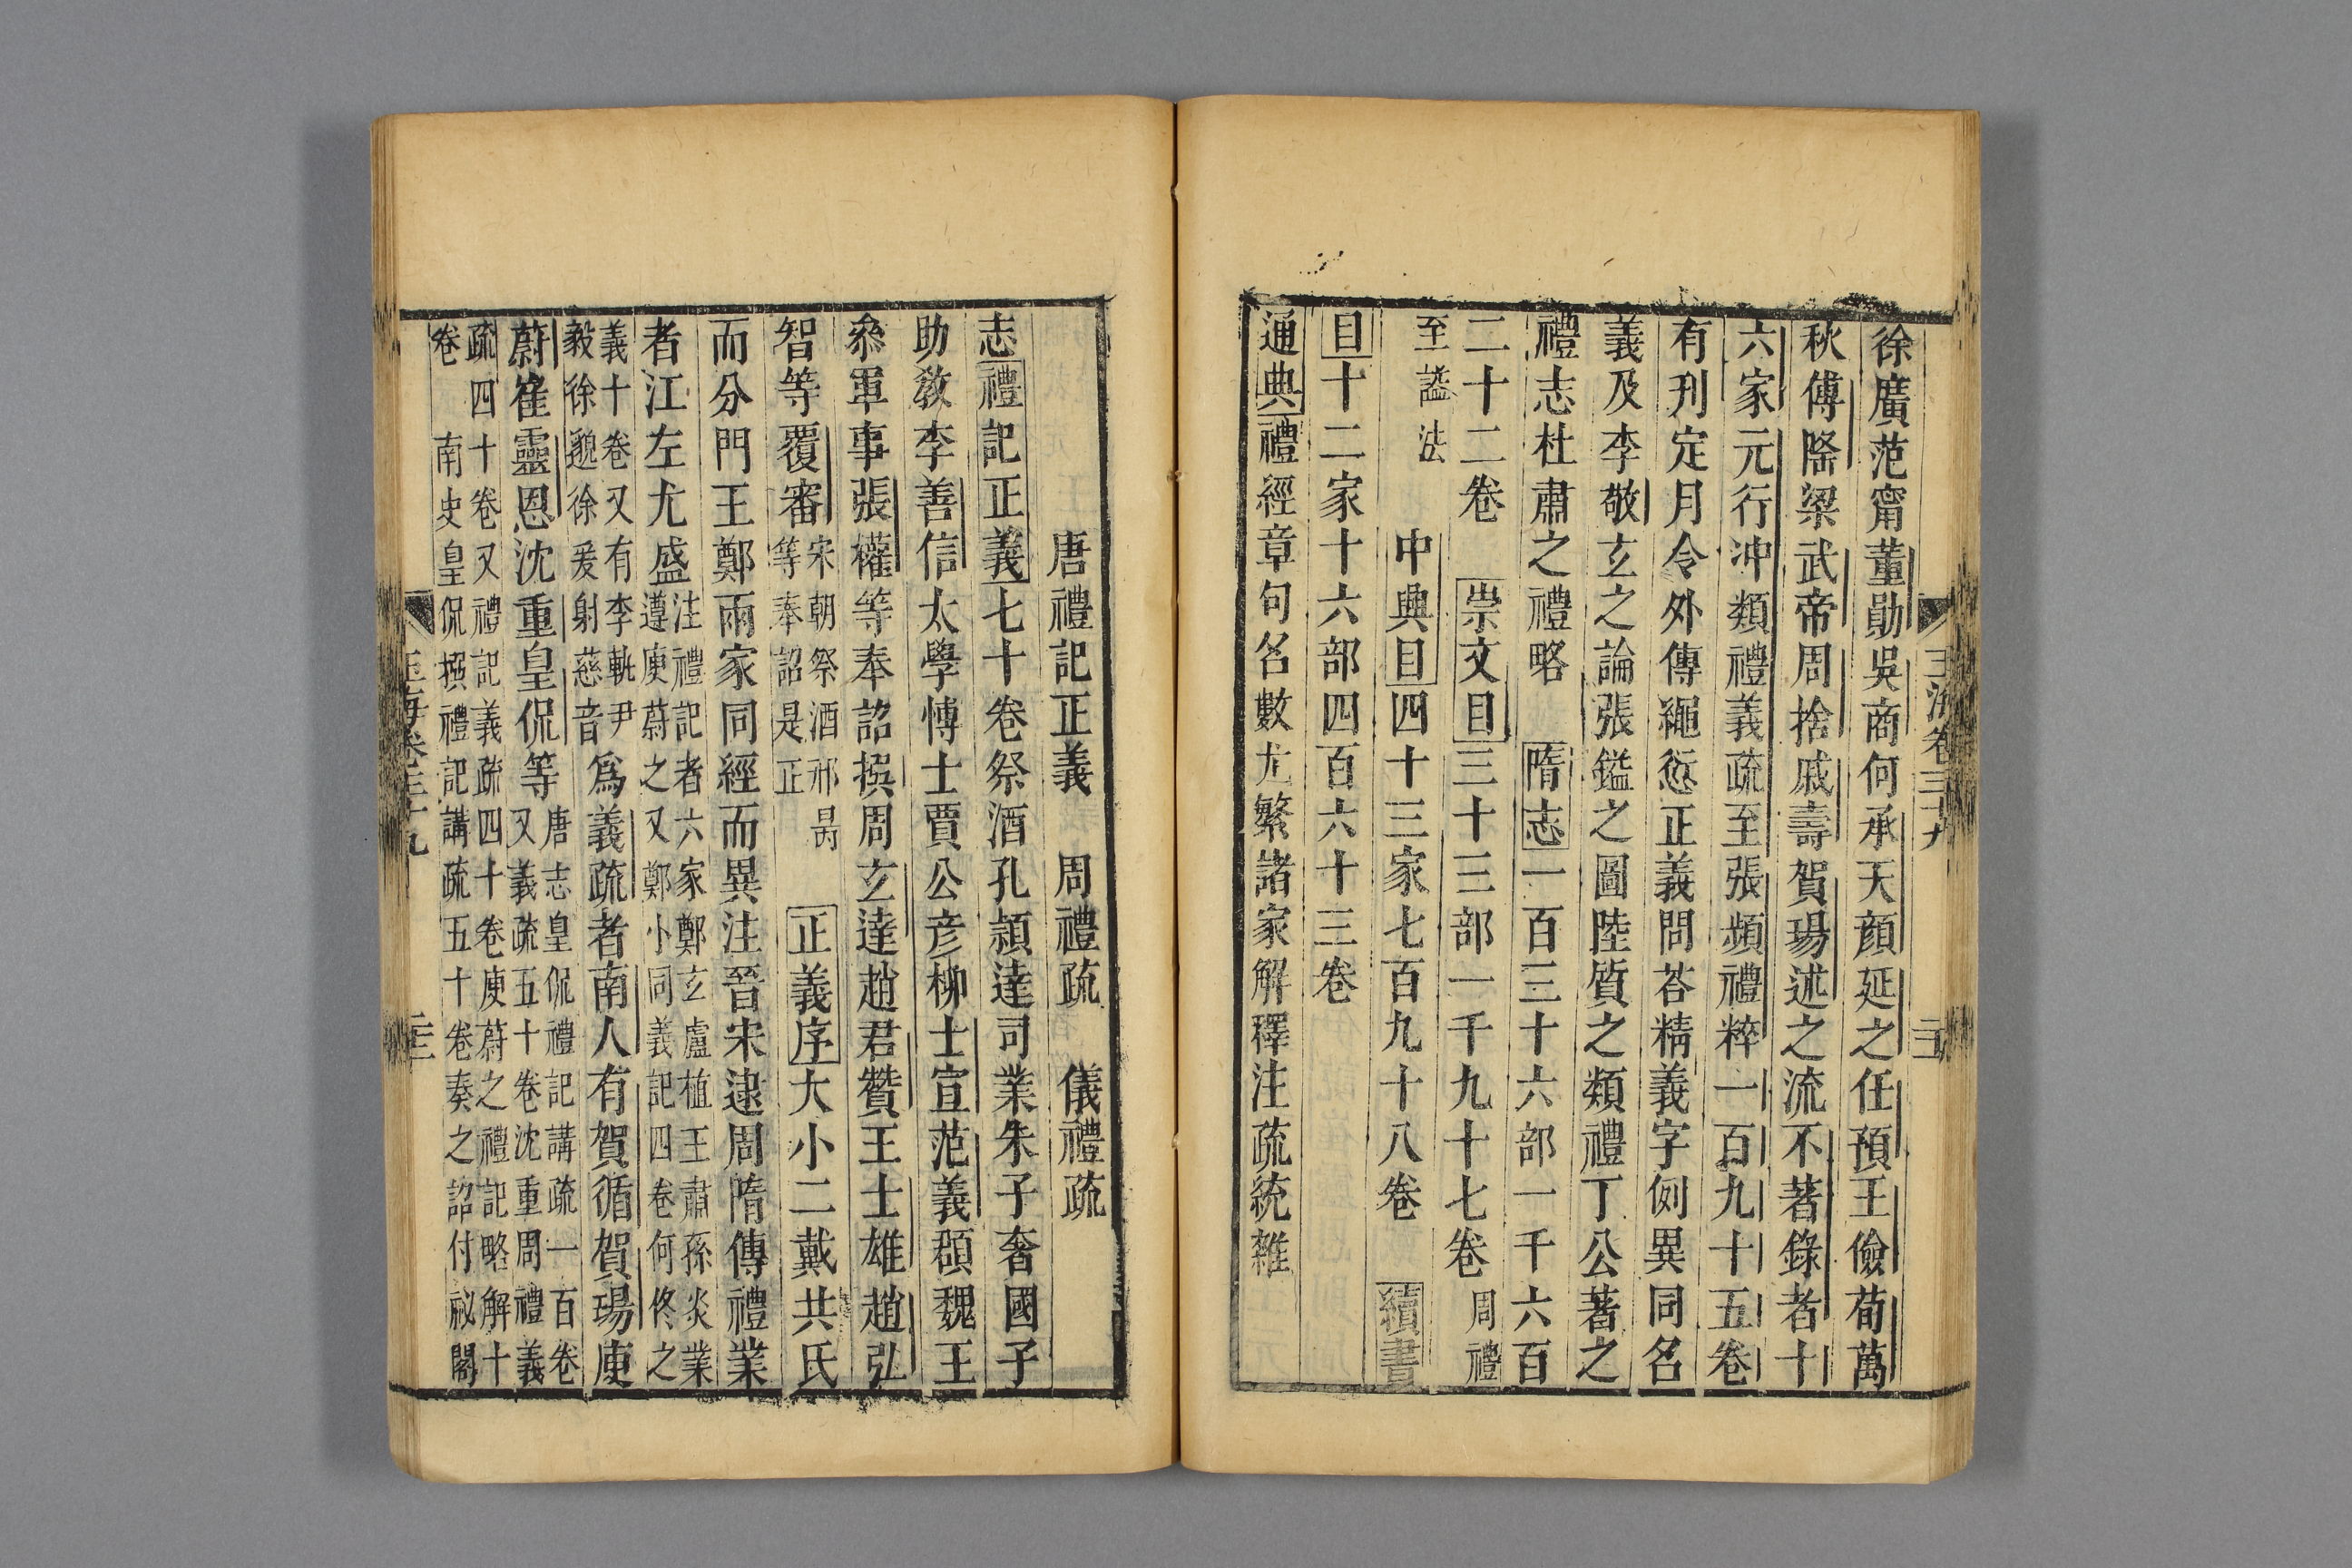 徐廣范甯董勛吳商何承天顔延之任預王儉荀萬
秋傅隆梁武帝周捨戚壽賀瑒述之流不著錄者十
六家元行冲類禮義疏至張頻禮粹一百九十五卷
有刋定月令外傳繩愆正義問荅精義字例異同名
義及李敬玄之論張鎰之圖陸質之類禮丁公著之
禮志杜肅之禮略 隋志一百三十六部一千六百
二十二卷 崇文目三十三部一千九十七卷 周禮
至諡法 中興目四十三家七百九十八卷 續書
目十二家十六部四百六十三卷
通典禮經章句名數尤繁諸家解釋注疏統雜
玉海卷三十九
唐禮記正義 周禮疏 儀禮疏
志禮記正義七十卷祭酒孔頴達司業朱子奢國子
助教李善信太學博士賈公彦柳士宣范義頵魏王
叅軍事張權等奉詔撰周玄達趙君贊王士雄趙弘
智等覆審 宋朝祭酒邢昺
等奉詔是正 正義序大小二戴共氏
而分門王鄭兩家同經而異注晉宋逮周隋傳禮業
者江左尤盛 注禮記者六家鄭玄盧植王肅孫炎業
遵庾蔚之又鄭小同義記四卷何佟之
義十卷又有李軌尹
毅徐邈徐爰射慈音 爲義疏者南人有賀循賀瑒庾
蔚崔靈恩沈重皇侃等 唐志皇侃禮記講疏一百卷
又義疏五十卷沈重周禮義
疏四十卷又禮記義疏四十卷庾蔚之禮記略解十
卷 南史皇侃撰禮記講疏五十卷奏之詔付祕閣
玉海卷三十九